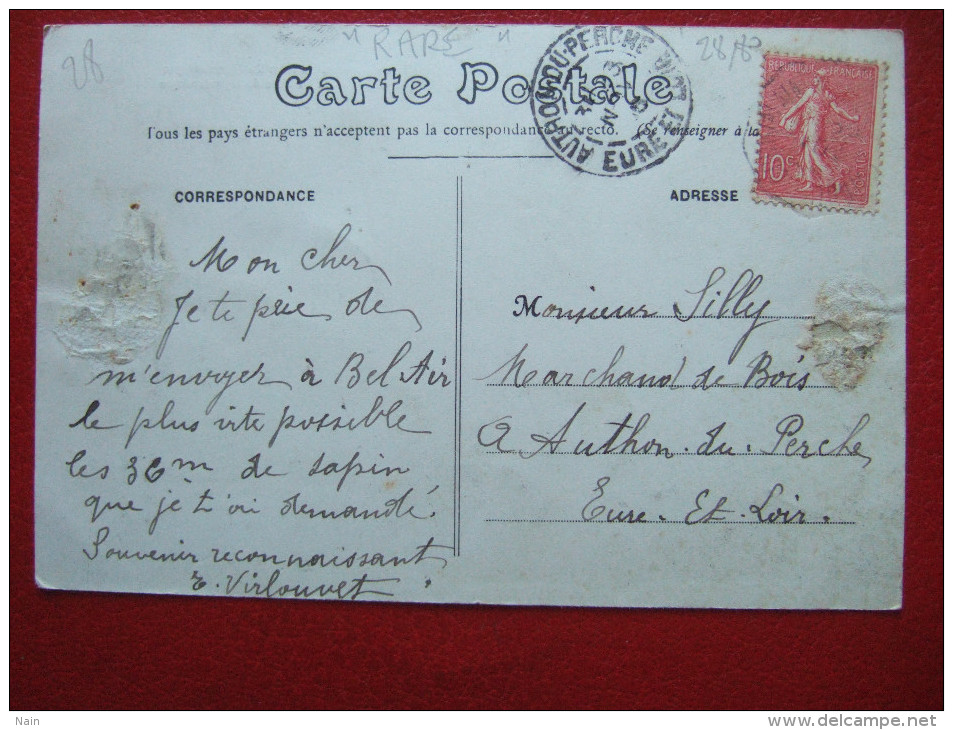 28
" RARE "
28/80
Carte Postale
Tous les pays étrangers n'acceptent pas la correspondance au recto. (Se renseigner à la
AUTHON-DU-PERCHE
EURE-ET-L
REPUBLIQUE FRANÇAISE
10c
POSTES
CORRESPONDANCE
ADRESSE
Mon cher
Je te prie de
m'envoyer à Bel Air
le plus vite possible
les 36m de sapin
que je t'ai demandé.
Souvenir reconnaissant
E. Virlouvet
Monsieur Silly
Marchand de Bois
A Authon-du-Perche
Eure-Et-Loir.
Nain
http://www.delcampe.net